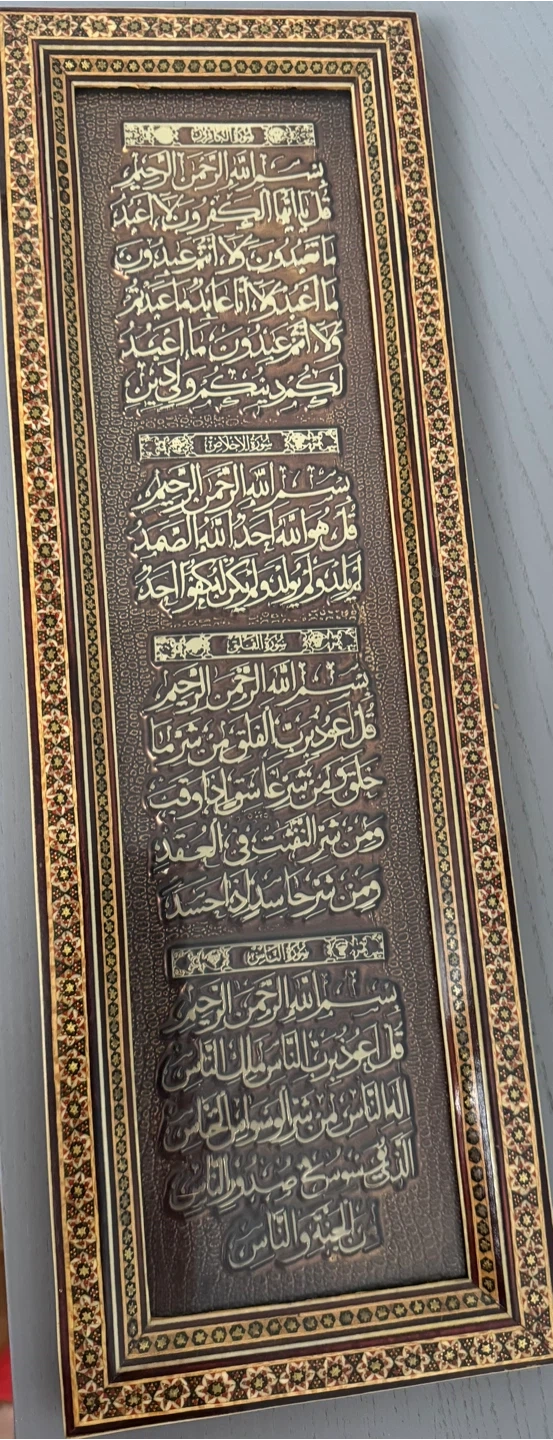 سورة الكافرون
بسم الله الرحمن الرحيم
قل يا أيها الكفرون لا أعبد
ما تعبدون ولا أنتم عبدون
ما أعبد ولا أنا عابد ما عبدتم
ولا أنتم عبدون ما أعبد
لكم دينكم ولي دين
سورة الاخلاص
بسم الله الرحمن الرحيم
قل هو الله أحد الله الصمد
لم يلد ولم يولد ولم يكن له كفوا أحد
سورة الفلق
بسم الله الرحمن الرحيم
قل أعوذ برب الفلق من شر ما
خلق ومن شر غاسق إذا وقب
ومن شر النفثت في العقد
ومن شر حاسد إذا حسد
سورة الناس
بسم الله الرحمن الرحيم
قل أعوذ برب الناس ملك الناس
إله الناس من شر الوسواس الخناس
الذي يوسوس في صدور الناس
من الجنة والناس